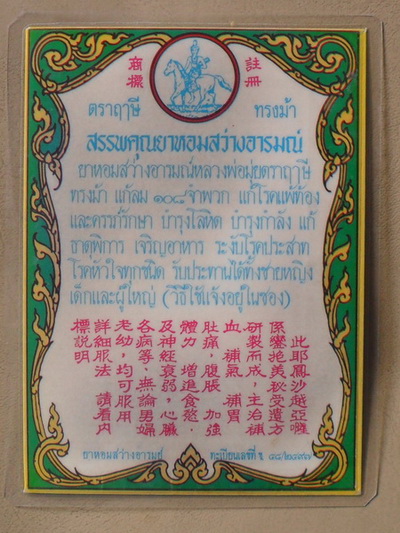 註冊
商標
ตราฤาษี ทรงม้า
สรรพคุณยาหอมสว่างอารมณ์
ยาหอมสว่างอารมณ์หลวงพ่อมุ่ยตราฤาษี
ทรงม้า แก้ลม ๑๐๘ จำพวก แก้โรคแพ้ท้อง
และครรภ์รักษา บำรุงโลหิต บำรุงกำลัง แก้
ธาตุพิการ เจริญอาหาร ระงับโรคประสาท
โรคหัวใจทุกชนิด รับประทานได้ทั้งชายหญิง
เด็กและผู้ใหญ่ (วิธีใช้แจ้งอยู่ในซอง)
此耶鳳沙越亞囉
係鑾抱美秘受遺方
研製而成，主治補
血，補氣，補胃
肚痛，腹脹，加強
體力，增進食慾．
及神經衰弱，心臟
各病等，無論男婦
老幼，均可服用
詳細服法，請看內
標說明
ยาหอมสว่างอารมณ์ ทะเบียนเลขที่